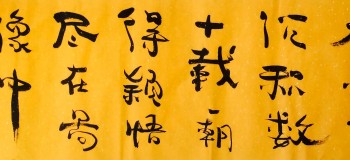 沉积数
十载一朝
得颖悟
尽在曷
像中